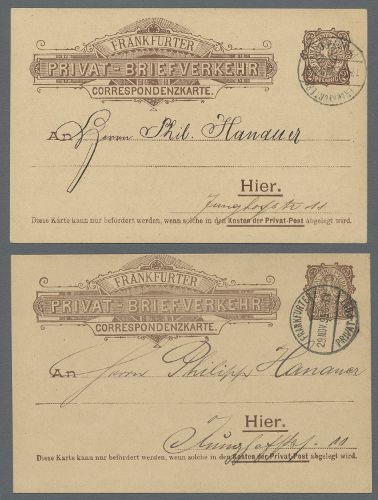 FRANKFURTER
PRIVAT-BRIEFVERKEHR
CORRESPONDENZKARTE.
An Herrn Phil. Hanauer
Hier.
Junghofstr 11
Diese Karte kann nur befördert werden, wenn solche in den Kasten der Privat-Post abgelegt wird.
FRANKFURTER
PRIVAT-BRIEFVERKEHR
CORRESPONDENZKARTE.
FRANKFURTER
29.NOV.
PRIVAT
An Herrn Philipp Hanauer
Hier.
Junghofstr. 11
Diese Karte kann nur befördert werden, wenn solche in den Kasten der Privat-Post abgelegt wird.